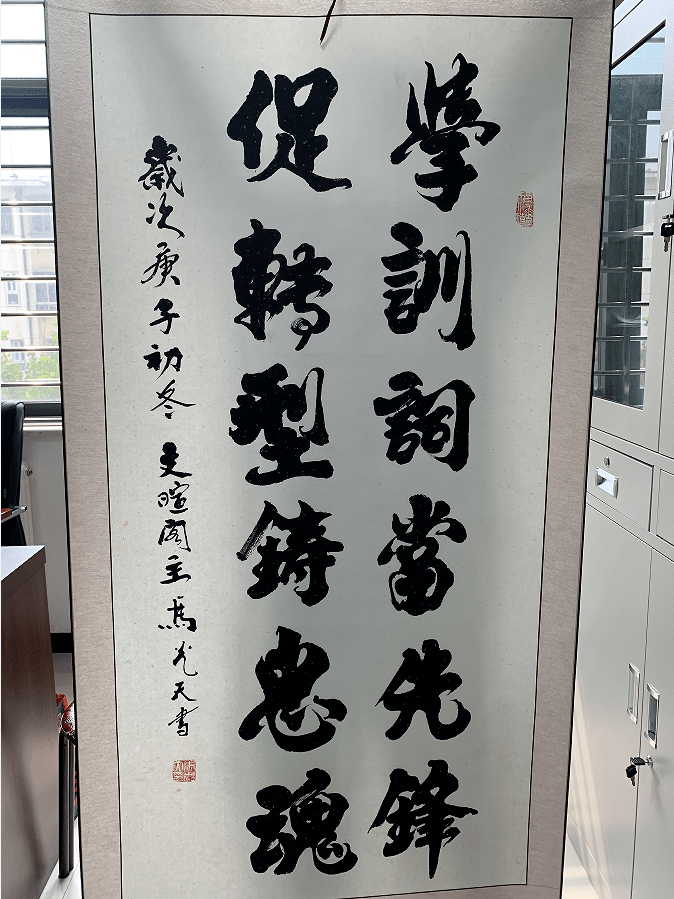 學訓詞當先鋒
促轉型鑄忠魂
歲次庚子初冬 文暄閣主馬光天書